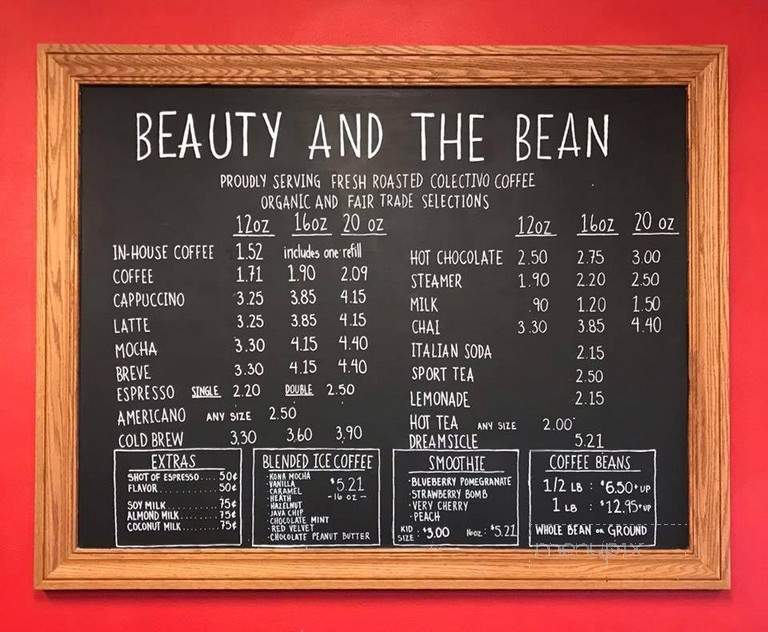 BEAUTY AND THE BEAN
PROUDLY SERVING FRESH ROASTED COLECTIVO COFFEE
ORGANIC AND FAIR TRADE SELECTIONS
12oz 16oz 20 oz
IN-HOUSE COFFEE 1.52 includes one refill
COFFEE 1.71 1.90 2.09
CAPPUCCINO 3.25 3.85 4.15
LATTE 3.25 3.85 4.15
MOCHA 3.30 4.15 4.40
BREVE 3.30 4.15 4.40
ESPRESSO SINGLE 2.20 DOUBLE 2.50
AMERICANO ANY SIZE 2.50
COLD BREW 3.30 3.60 3.90
12oz 16oz 20 oz
HOT CHOCOLATE 2.50 2.75 3.00
STEAMER 1.90 2.20 2.50
MILK .90 1.20 1.50
CHAI 3.30 3.85 4.40
ITALIAN SODA 2.15
SPORT TEA 2.50
LEMONADE 2.15
HOT TEA ANY SIZE 2.00
DREAMSICLE 5.21
EXTRAS
SHOT OF ESPRESSO.... 50¢
FLAVOR.......... 50¢
SOY MILK........ 75¢
ALMOND MILK.... 75¢
COCONUT MILK.... 75¢
BLENDED ICE COFFEE
· KONA MOCHA
· VANILLA
· CARAMEL
· HEATH
· HAZELNUT
· JAVA CHIP
· CHOCOLATE MINT
· RED VELVET
· CHOCOLATE PEANUT BUTTER
$5.21
-16 oz-
SMOOTHIE
· BLUEBERRY POMEGRANATE
· STRAWBERRY BOMB
· VERY CHERRY
· PEACH
KID SIZE: $3.00 16oz: $5.21
COFFEE BEANS
1/2 LB : $6.50+UP
1 LB : $12.95+UP
WHOLE BEAN or GROUND
menupix